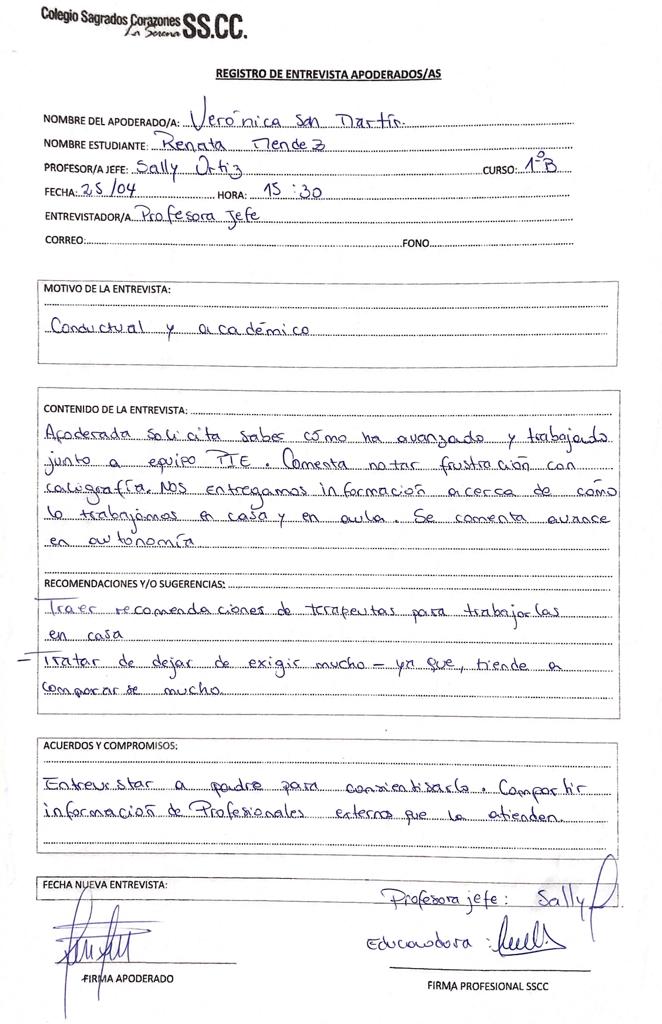 Colegio Sagrados Corazones SS.CC.
La Serena
REGISTRO DE ENTREVISTA APODERADOS/AS
NOMBRE DEL APODERADO/A: Verónica San Martín
NOMBRE ESTUDIANTE: Renata Mendez
PROFESOR/A JEFE: Sally Ortiz CURSO: 1°B
FECHA: 25/04 HORA: 15:30
ENTREVISTADOR/A Profesora Jefe
CORREO: FONO
MOTIVO DE LA ENTREVISTA:
Conductual y académico
CONTENIDO DE LA ENTREVISTA:
Apoderada solicita saber cómo ha avanzado y trabajado
junto a equipo PIE. Comenta notar frustración con
caligrafía. Nos entregamos información acerca de cómo
lo trabajamos en casa y en aula. Se comenta avance
en autonomía
RECOMENDACIONES Y/O SUGERENCIAS:
Traer recomendaciones de terapeutas para trabajarlas
en casa
- Tratar de dejar de exigir mucho - ya que, tiende a
compararse mucho
ACUERDOS Y COMPROMISOS:
Entrevistar a padre para consientisarlo. Compartir
información de Profesionales externos que la atienden.
FECHA NUEVA ENTREVISTA:
Profesora jefe: Sally
Educadora:
FIRMA APODERADO
FIRMA PROFESIONAL SSCC